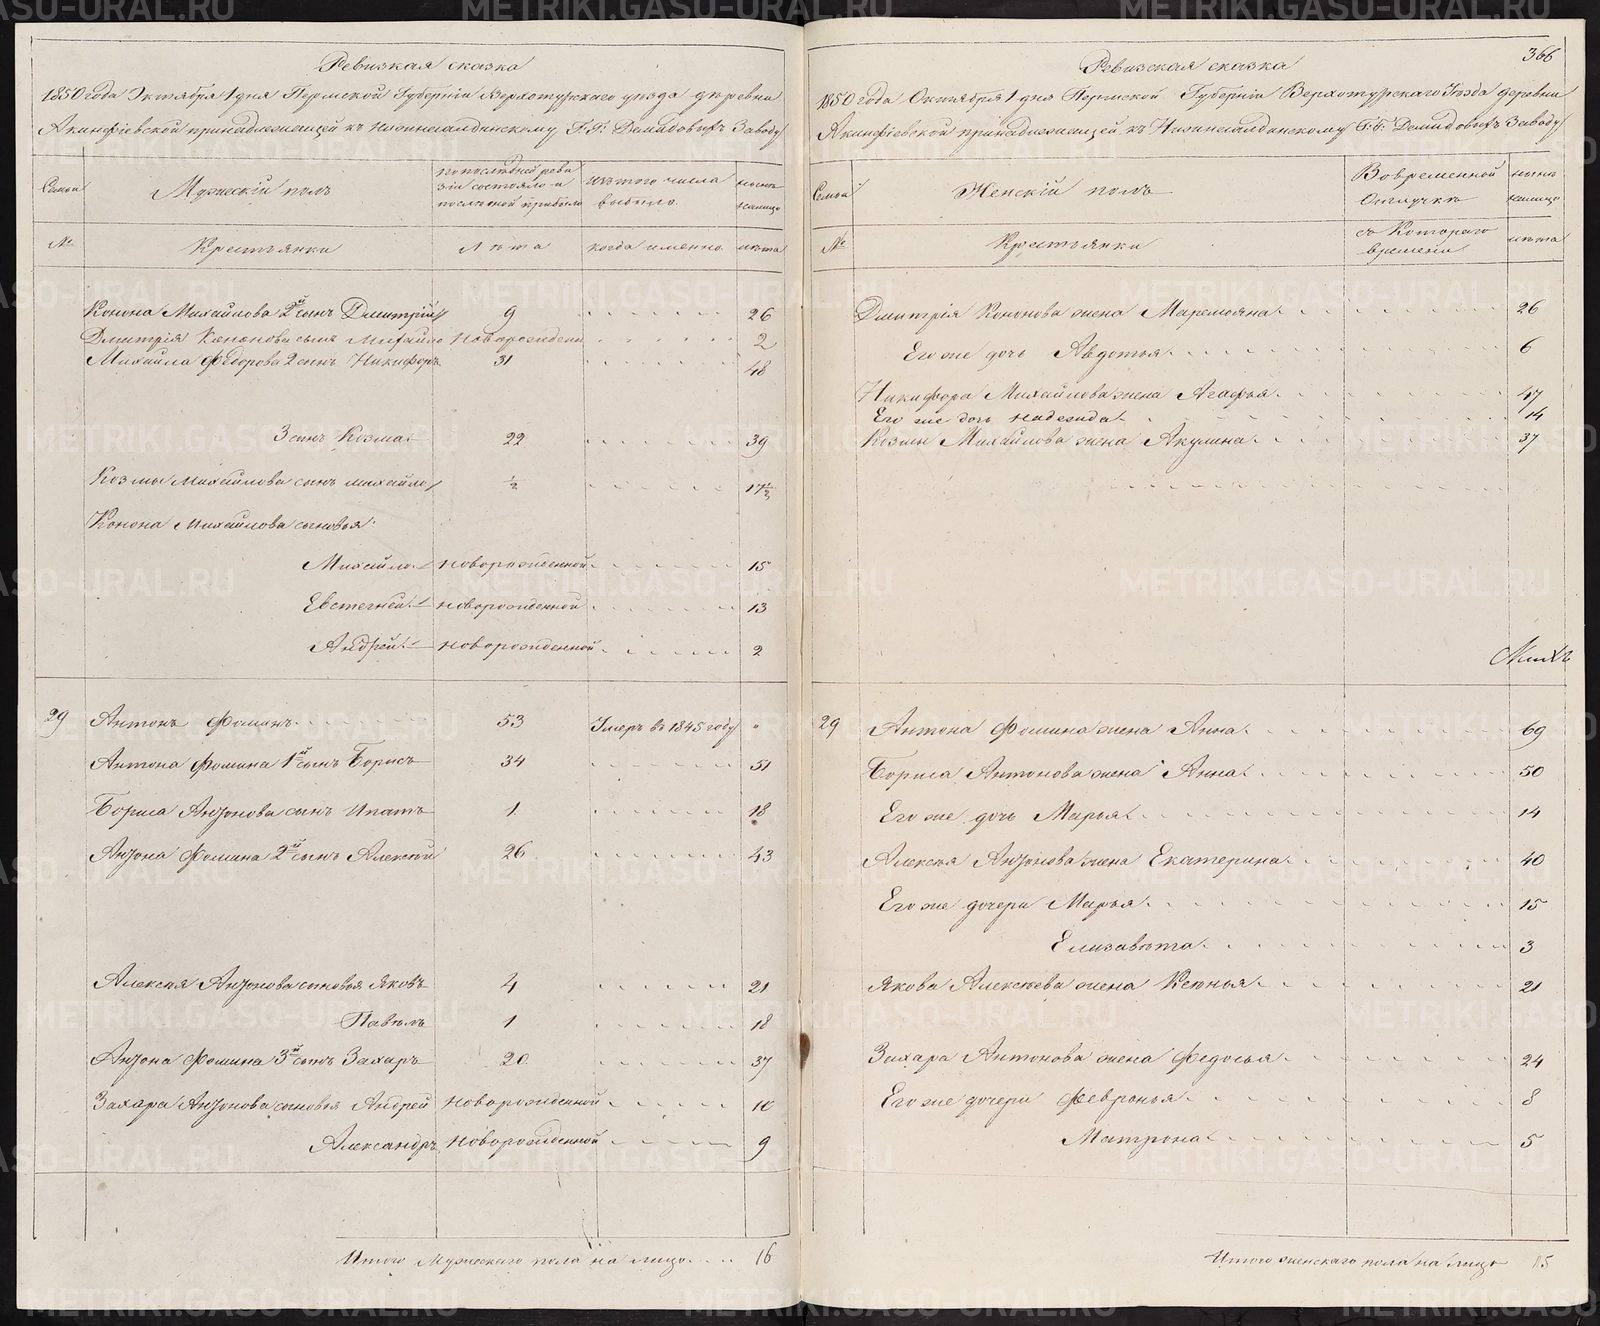 Ревизкая сказка
1850 года Октября 1 дня Пермской Губерніи Верхотурскаго уезда деревни
Акинфіевской принадлежащей къ Нижнесалдинскому Г.Г. Демидовыхъ Заводу
Семьи
Мужескій полъ
по последней реви
зіи состояло и
после оной прибыло
изъ того числа
выбыло
ныне
налицо
№
Крестьянки
Лета
когда именно
лета
Конона Михайлова 2й сынъ Дмитрій 9 26
Дмитрія Кононова сынъ Михайло Новорожден 2
Михайла Федорова 2 сынъ Никифоръ 31 48
3 сынъ Козма 22 39
Козмы Михайлова сынъ Михайло 1/2 17 1/2
Конона Михайлова сыновья:
Михайло новорожденной 15
Евстегней новорожденной 13
Андрей новорожденной 2
29 Антонъ Фоминъ 53 Умеръ въ 1845 году "
Антона Фомина 1й сынъ Борисъ 34 51
Бориса Антонова сынъ Ипатъ 1 18
Антона Фомина 2й сынъ Алексей 26 43
Алексея Антонова сыновья Яковъ 4 21
Павелъ 1 18
Антона Фомина 3й сынъ Захаръ 20 37
Захара Антонова сыновья Андрей Новорожденной 10
Александръ Новорожденной 9
Итого Мужескаго пола на лицо 16
366
Ревизская сказка
1850 года Октября 1 дня Пермской Губерніи Верхотурскаго Уезда деревни
Акинфіевской принадлежащей къ Нижнесалдинскому Г.Г. Демидовыхъ Заводу
Семьи
Женскій полъ
Во временной
Отлучке
ныне
налицо
№
Крестьянки
съ Котораго
времени
лета
Дмитрія Кононова жена Маремьяна 26
Его же дочь Авдотья 6
Никифора Михайлова жена Агафья 47
Его же дочь Надежда 14
Козмы Михайлова жена Акулина 37
29 Антона Фомина жена Анна 69
Бориса Антонова жена Анна 50
Его же дочь Марья 14
Алексея Антонова жена Екатерина 40
Его же дочери Марья 15
Елизавета 3
Якова Алексеева жена Ксенья 21
Захара Антонова жена Федосья 24
Его же дочери Февронья 8
Матрона 5
Итого женскаго пола на лицо 15
METRIKI.GASO-URAL.RU